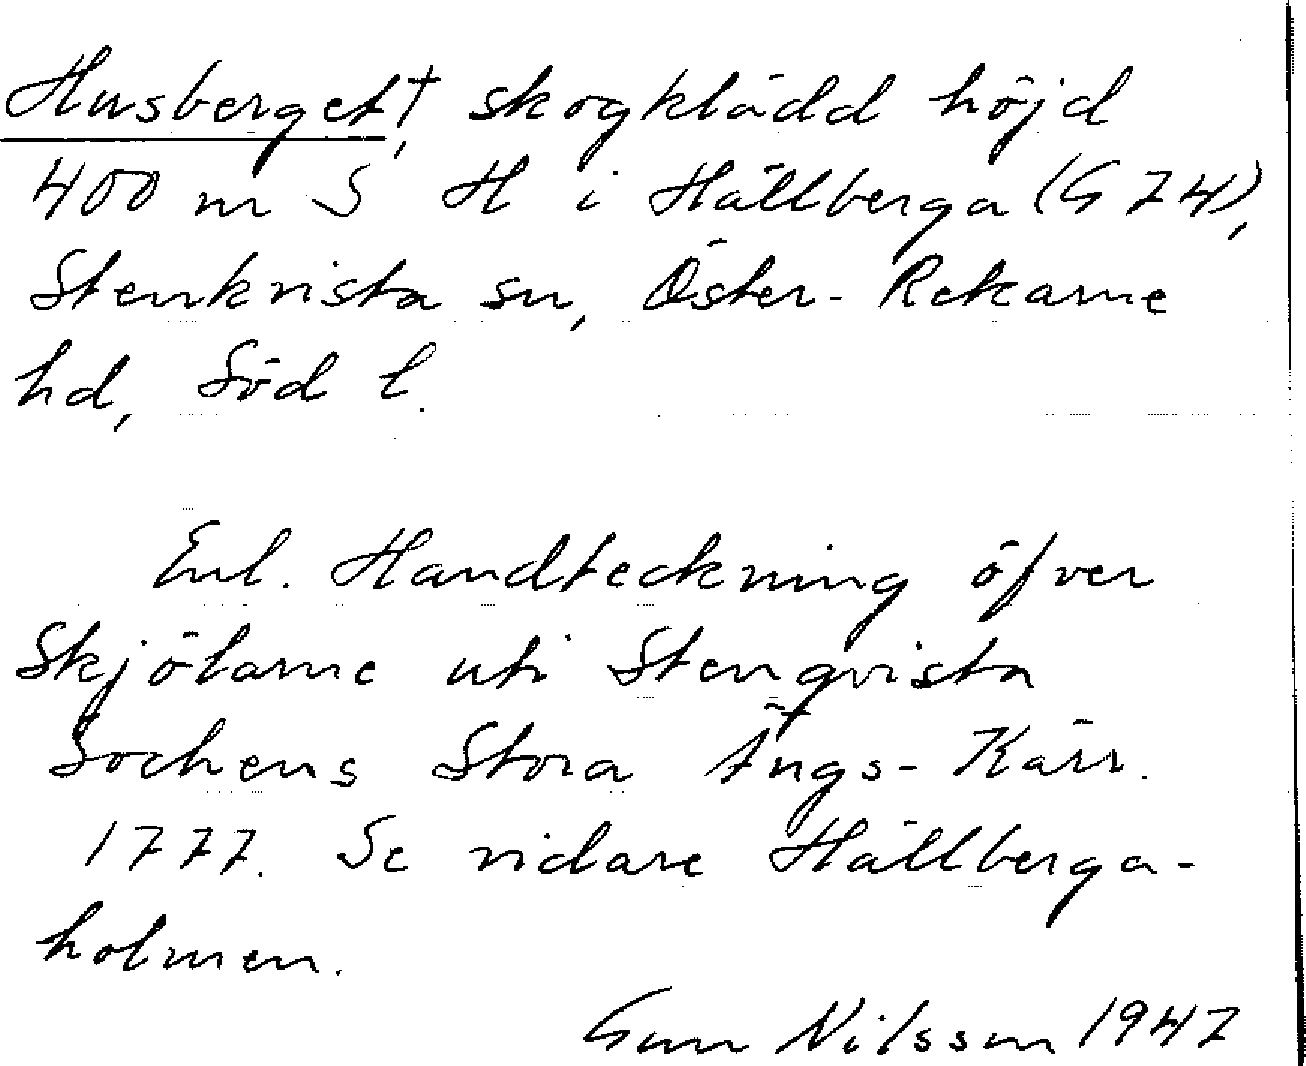 Husberget†, skogklädd höjd
400 m S H i Hällberga (G 74),
Stenkvista sn, Öster-Rekarne
hd, Söd l.
Enl. Handteckning öfver
Skjölarne uti Stenqvista
Sockens Stora Ängs-Kärr.
1777. Se vidare Hällberga-
holmen.
Gun Nilsson 1947